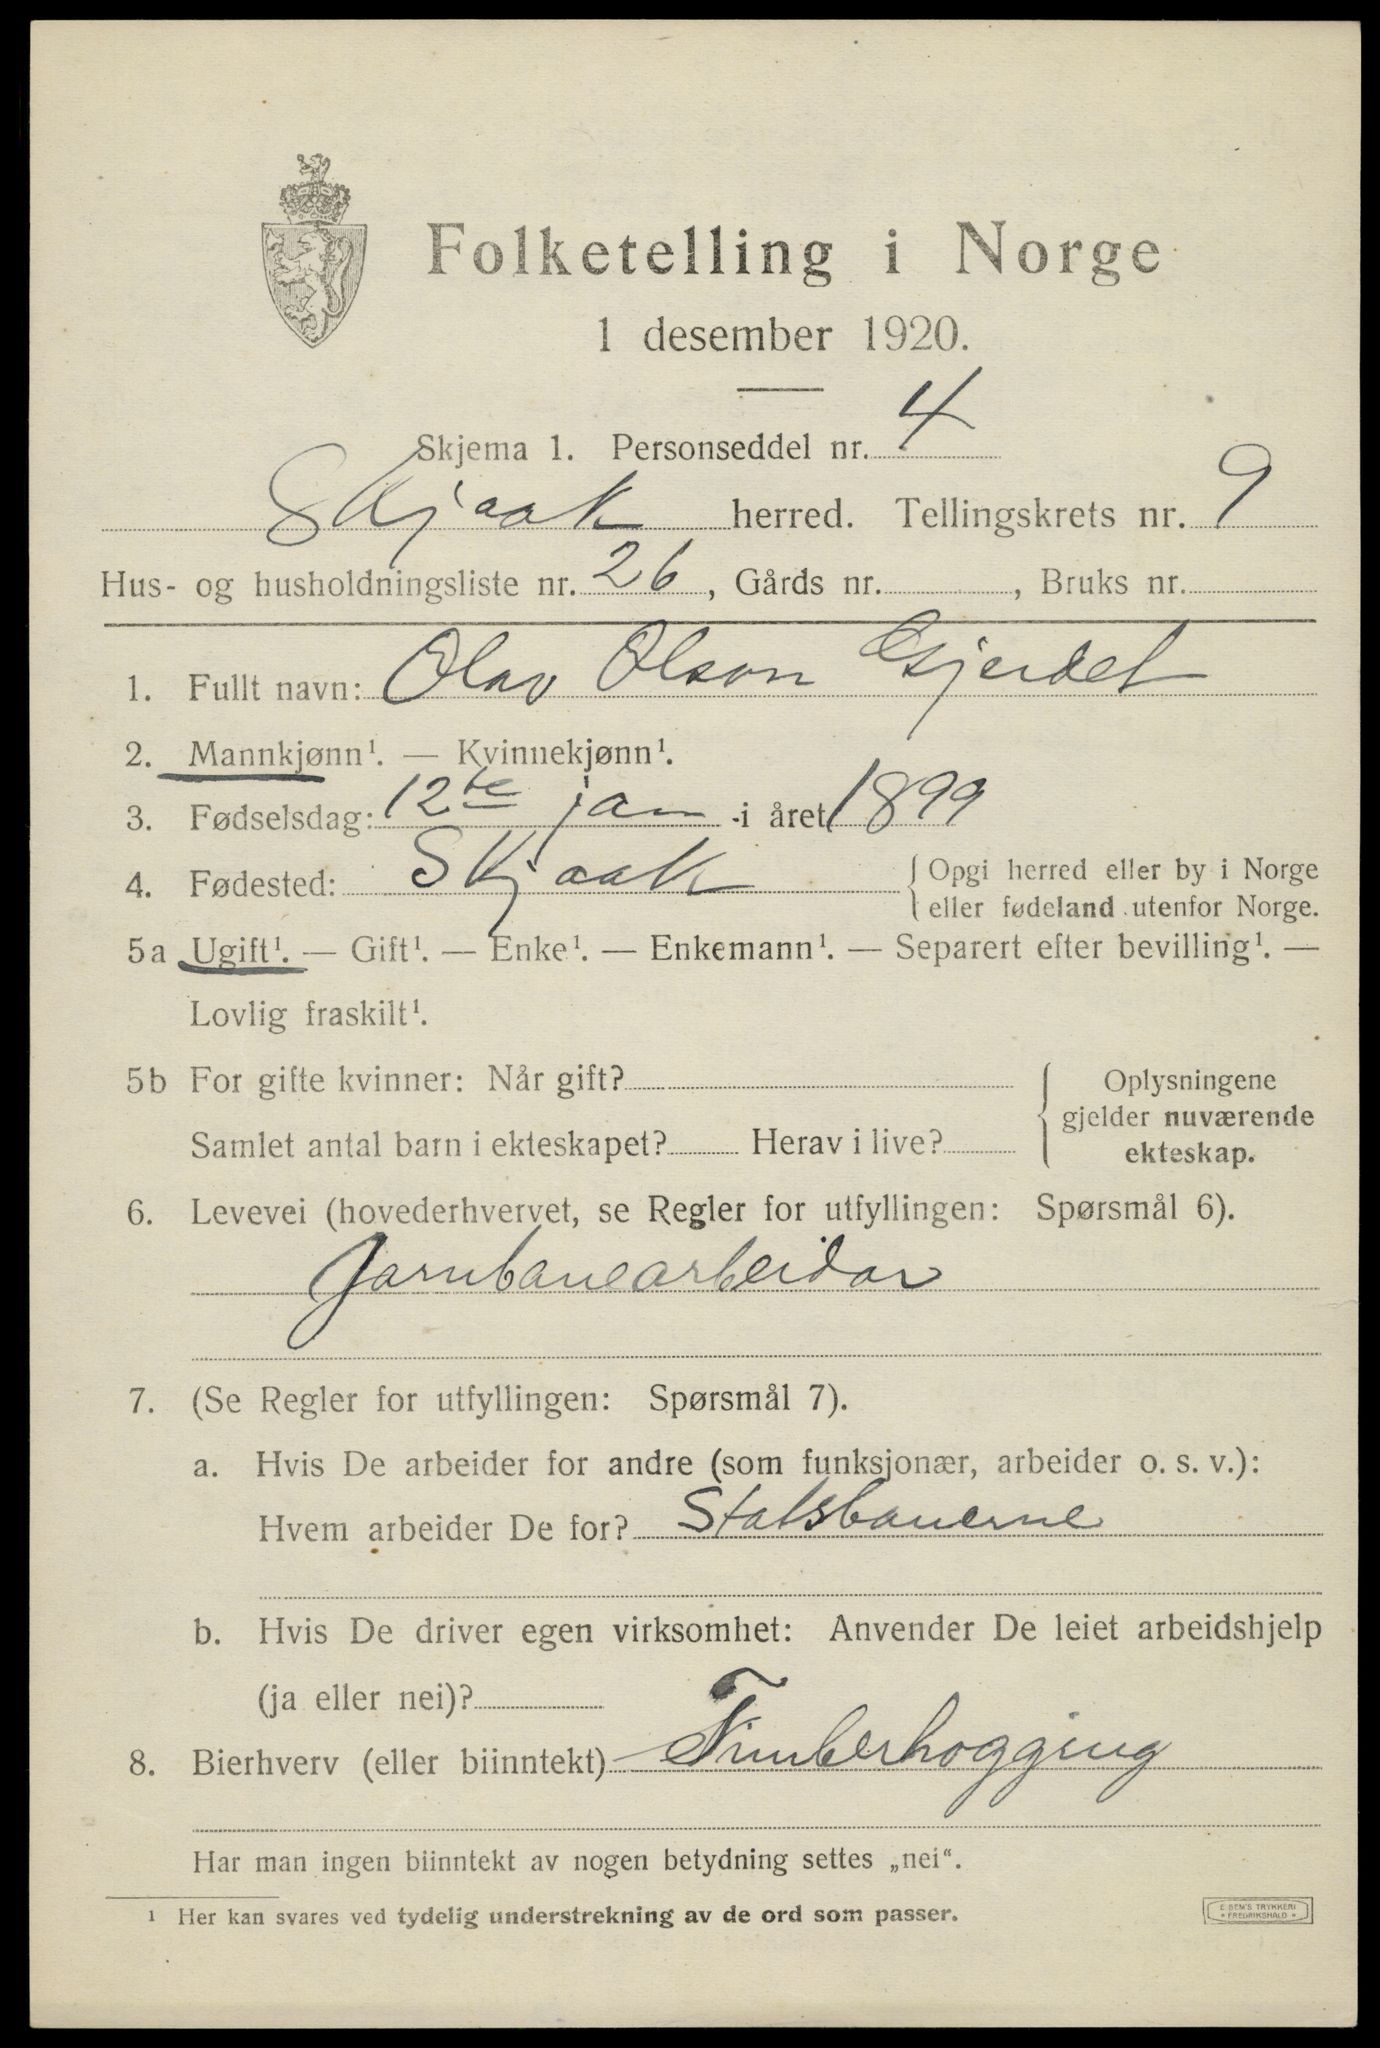 Folketelling i Norge
1 desember 1920.
Skjema 1. Personseddel nr. 4
Skjaak herred. Tellingskrets nr. 9
Hus- og husholdningsliste nr. 26, Gårds nr. , Bruks nr.
1. Fullt navn: Olav Olson Gjerdet
2. Mannkjønn¹. — Kvinnekjønn¹.
3. Fødselsdag: 12te jan i året 1899
4. Fødested: Skjaak { Opgi herred eller by i Norge
eller fødeland utenfor Norge.
5a Ugift¹. — Gift¹. — Enke¹. — Enkemann¹. — Separert efter bevilling¹. —
Lovlig fraskilt¹.
5b For gifte kvinner: Når gift?
Samlet antal barn i ekteskapet? Herav i live?
{ Oplysningene
gjelder nuværende
ekteskap.
6. Levevei (hovederhvervet, se Regler for utfyllingen: Spørsmål 6).
Jarnbanearbeidar
7. (Se Regler for utfyllingen: Spørsmål 7).
a. Hvis De arbeider for andre (som funksjonær, arbeider o. s. v.):
Hvem arbeider De for? Statsbanerne
b. Hvis De driver egen virksomhet: Anvender De leiet arbeidshjelp
(ja eller nei)?
8. Bierhverv (eller biinntekt) Timberhogging
Har man ingen biinntekt av nogen betydning settes „nei“.
¹ Her kan svares ved tydelig understrekning av de ord som passer.
E SEM'S TRYKKERI
* FREDRIKSHALD *